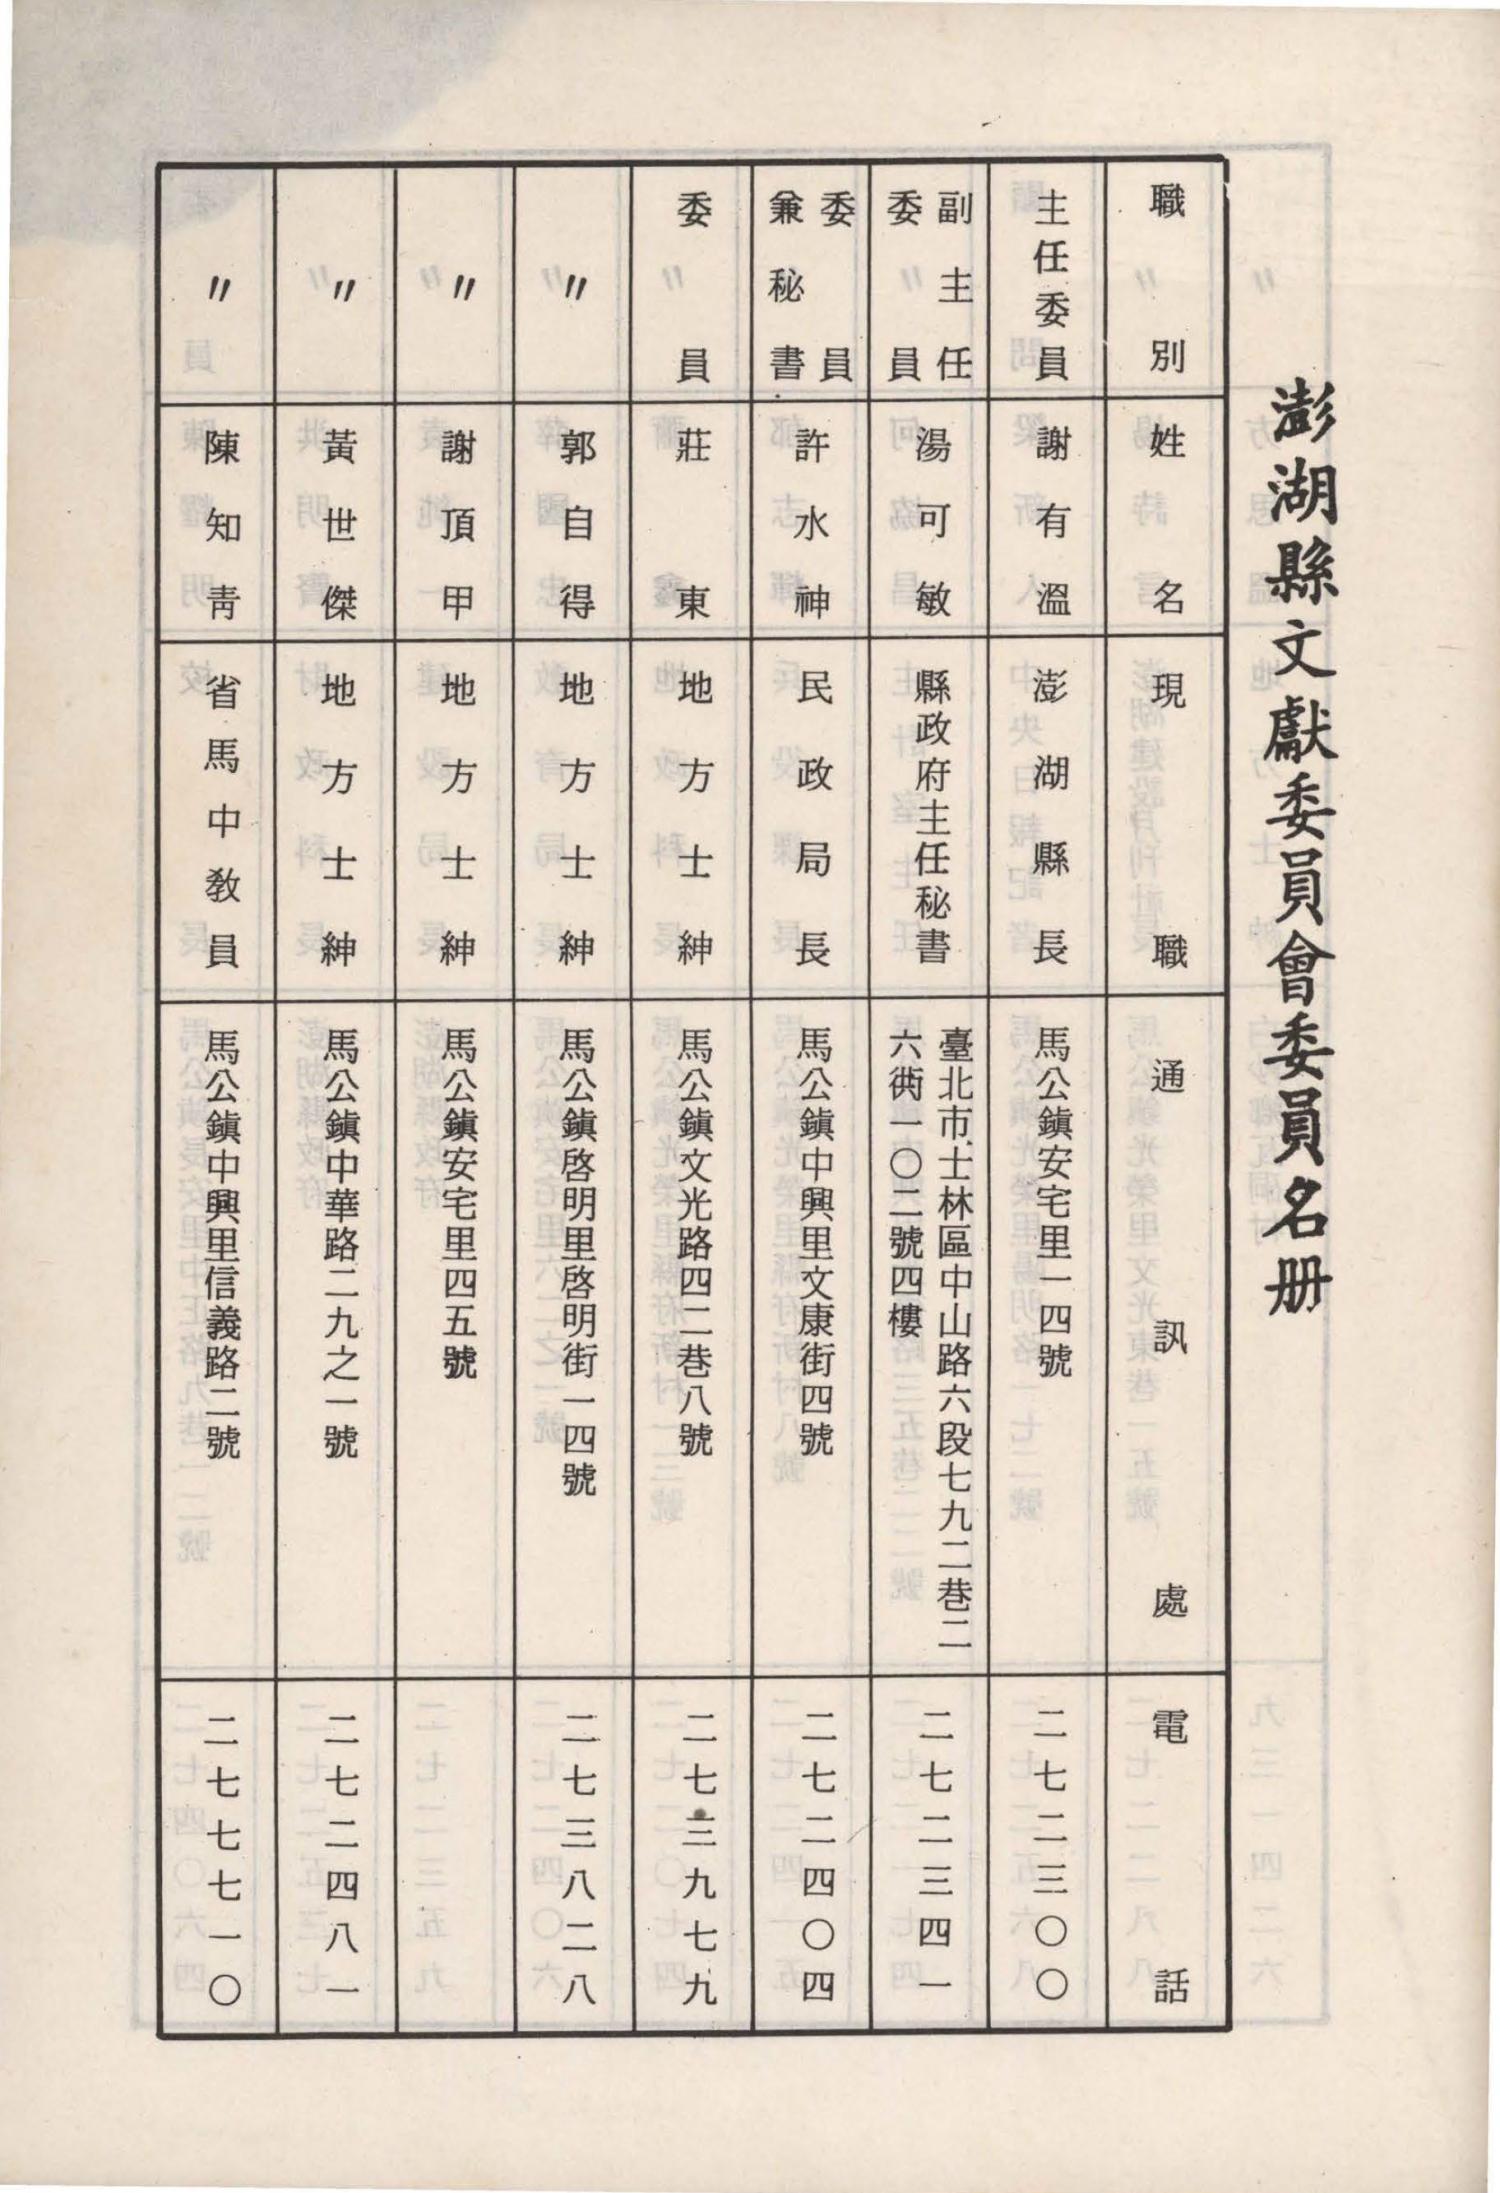 澎湖縣文獻委員會委員名册
職別 姓名 現職 通訊處 電話
主任委員 謝有溫 澎湖縣長 馬公鎮安宅里一四號 二七二三〇〇
副主任委員 湯可敏 縣政府主任秘書 臺北市士林區中山路六段七九二巷二六衖一〇二號四樓 二七二三四一
委員兼秘書 許水神 民政局長 馬公鎮中興里文康街四號 二七二四〇四
委員 莊東 地方士紳 馬公鎮文光路四二巷八號 二七三九七九
〃 郭自得 地方士紳 馬公鎮啓明里啓明街一四號 二七三八二八
〃 謝頂甲 地方士紳 馬公鎮安宅里四五號
〃 黃世傑 地方士紳 馬公鎮中華路二九之一號 二七二四八一
〃 陳知青 省馬中教員 馬公鎮中興里信義路二號 二七七七一〇